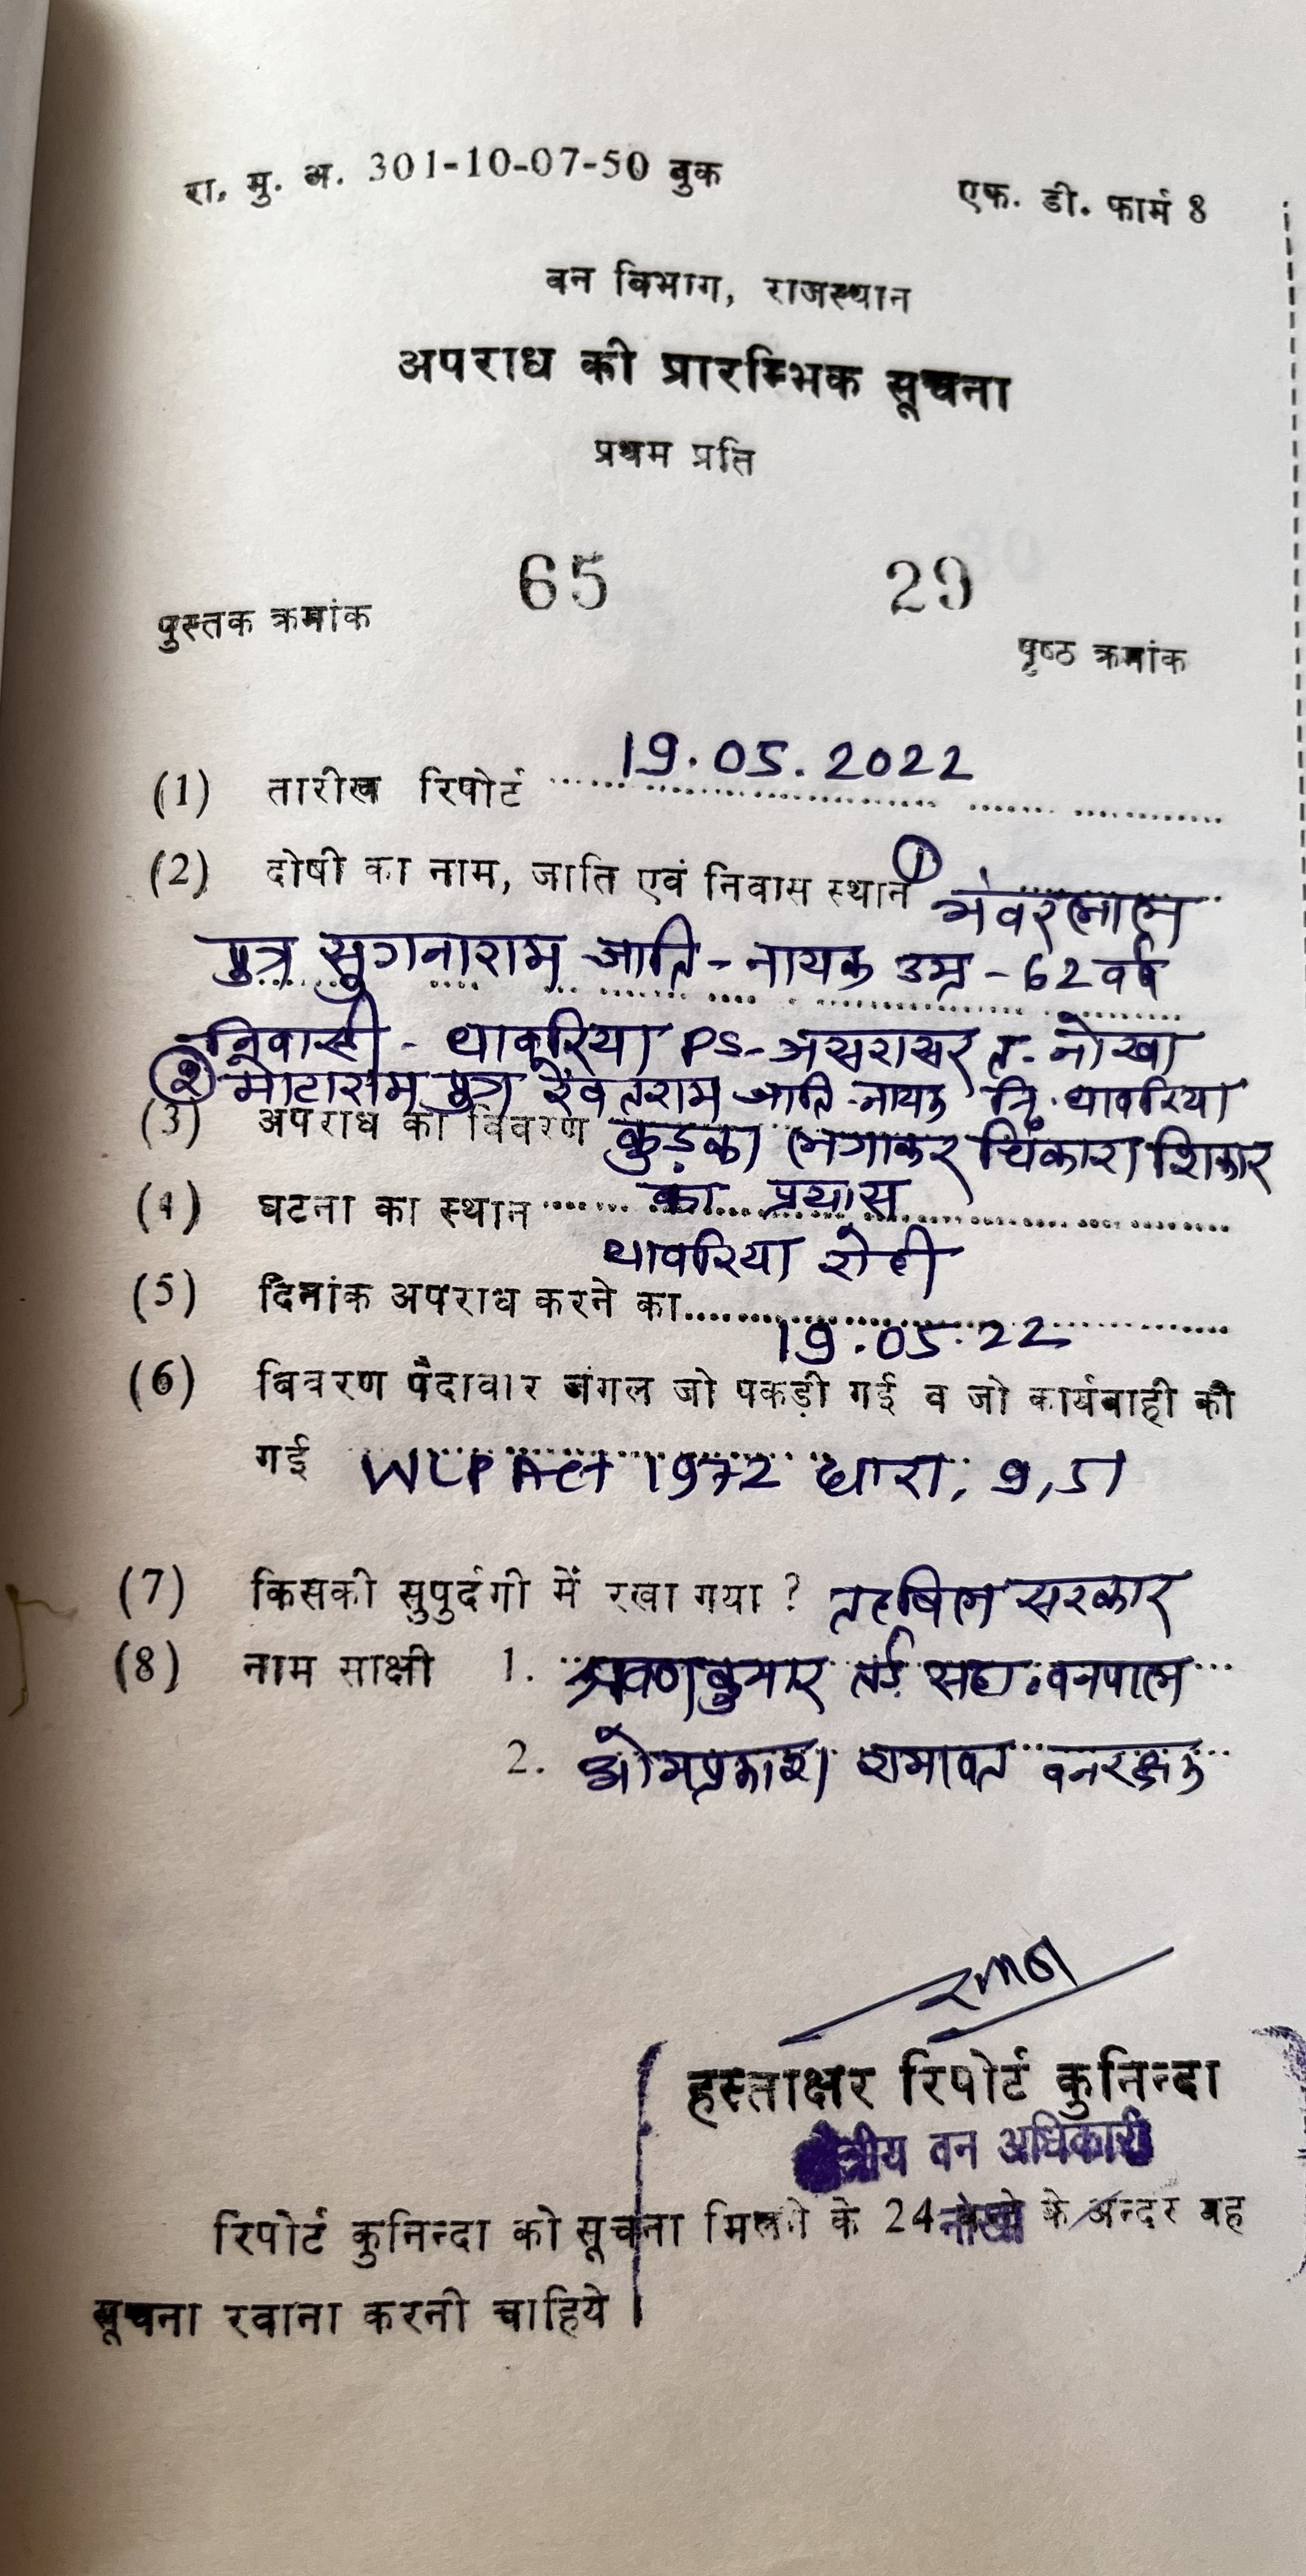 रा. मु. अ. 301-10-07-50 बुक
एफ. डी. फार्म 8
वन विभाग, राजस्थान
अपराध की प्रारम्भिक सूचना
प्रथम प्रति
65 29
पुस्तक क्रमांक
पृष्ठ क्रमांक
(1) तारीख रिपोर्ट 19.05.2022
(2) दोषी का नाम, जाति एवं निवास स्थान ① भंवरलाल
पुत्र सुगनाराम जाति - नायक उम्र - 62 वर्ष
निवासी - थावरिया PS - जसरासर त. नोखा
② मोटाराम पुत्र रेवतराम जाति - नायक नि. थावरिया
(3) अपराध का विवरण कुड़का लगाकर चिंकारा शिकार
का प्रयास
(4) घटना का स्थान
थावरिया रोही
(5) दिनांक अपराध करने का
19.05.22
(6) विवरण पैदावार जंगल जो पकड़ी गई व जो कार्यवाही की
गई WLP Act 1972 धारा, 9, 51
(7) किसकी सुपुर्दगी में रखा गया ? तहबिल सरकार
(8) नाम साक्षी 1. श्रवणकुमार सहा. वनपाल
2. ओमप्रकाश रामावत वनरक्षक
हस्ताक्षर रिपोर्ट कुनिन्दा
क्षेत्रीय वन अधिकारी
नोखा
रिपोर्ट कुनिन्दा को सूचना मिलने के 24 के अन्दर वह
सूचना रवाना करनी चाहिये ।